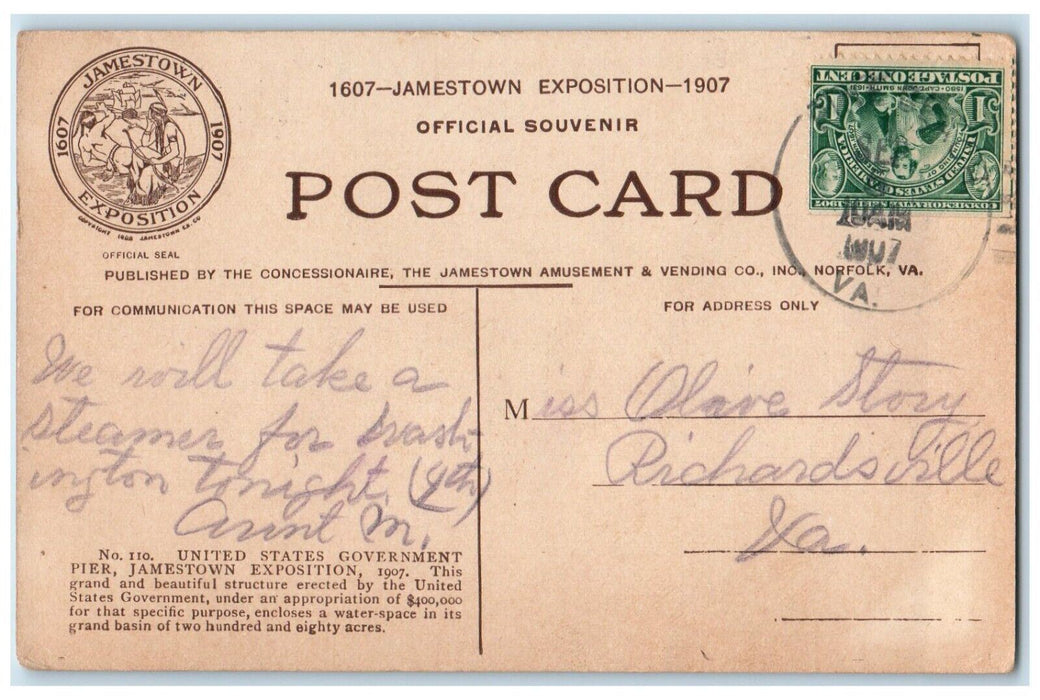 JAMESTOWN
1607 1907
EXPOSITION
COPYRIGHT 1905 JAMESTOWN EX. CO
OFFICIAL SEAL
1607—JAMESTOWN EXPOSITION—1907
OFFICIAL SOUVENIR
POST CARD
PUBLISHED BY THE CONCESSIONAIRE, THE JAMESTOWN AMUSEMENT & VENDING CO., INC., NORFOLK, VA.
COMMEMORATIVE SERIES 1907
UNITED STATES OF AMERICA
1 1
1580 • CAPT. JOHN SMITH • 1631
POSTAGE ONE CENT
10 AM
1907
VA.
FOR COMMUNICATION THIS SPACE MAY BE USED
We will take a
steamer for Wash-
ington tonight. (9th)
Aunt M.
No. 110. UNITED STATES GOVERNMENT
PIER, JAMESTOWN EXPOSITION, 1907. This
grand and beautiful structure erected by the United
States Government, under an appropriation of $400,000
for that specific purpose, encloses a water-space in its
grand basin of two hundred and eighty acres.
FOR ADDRESS ONLY
Miss Olive Story
Richardsville
Va.